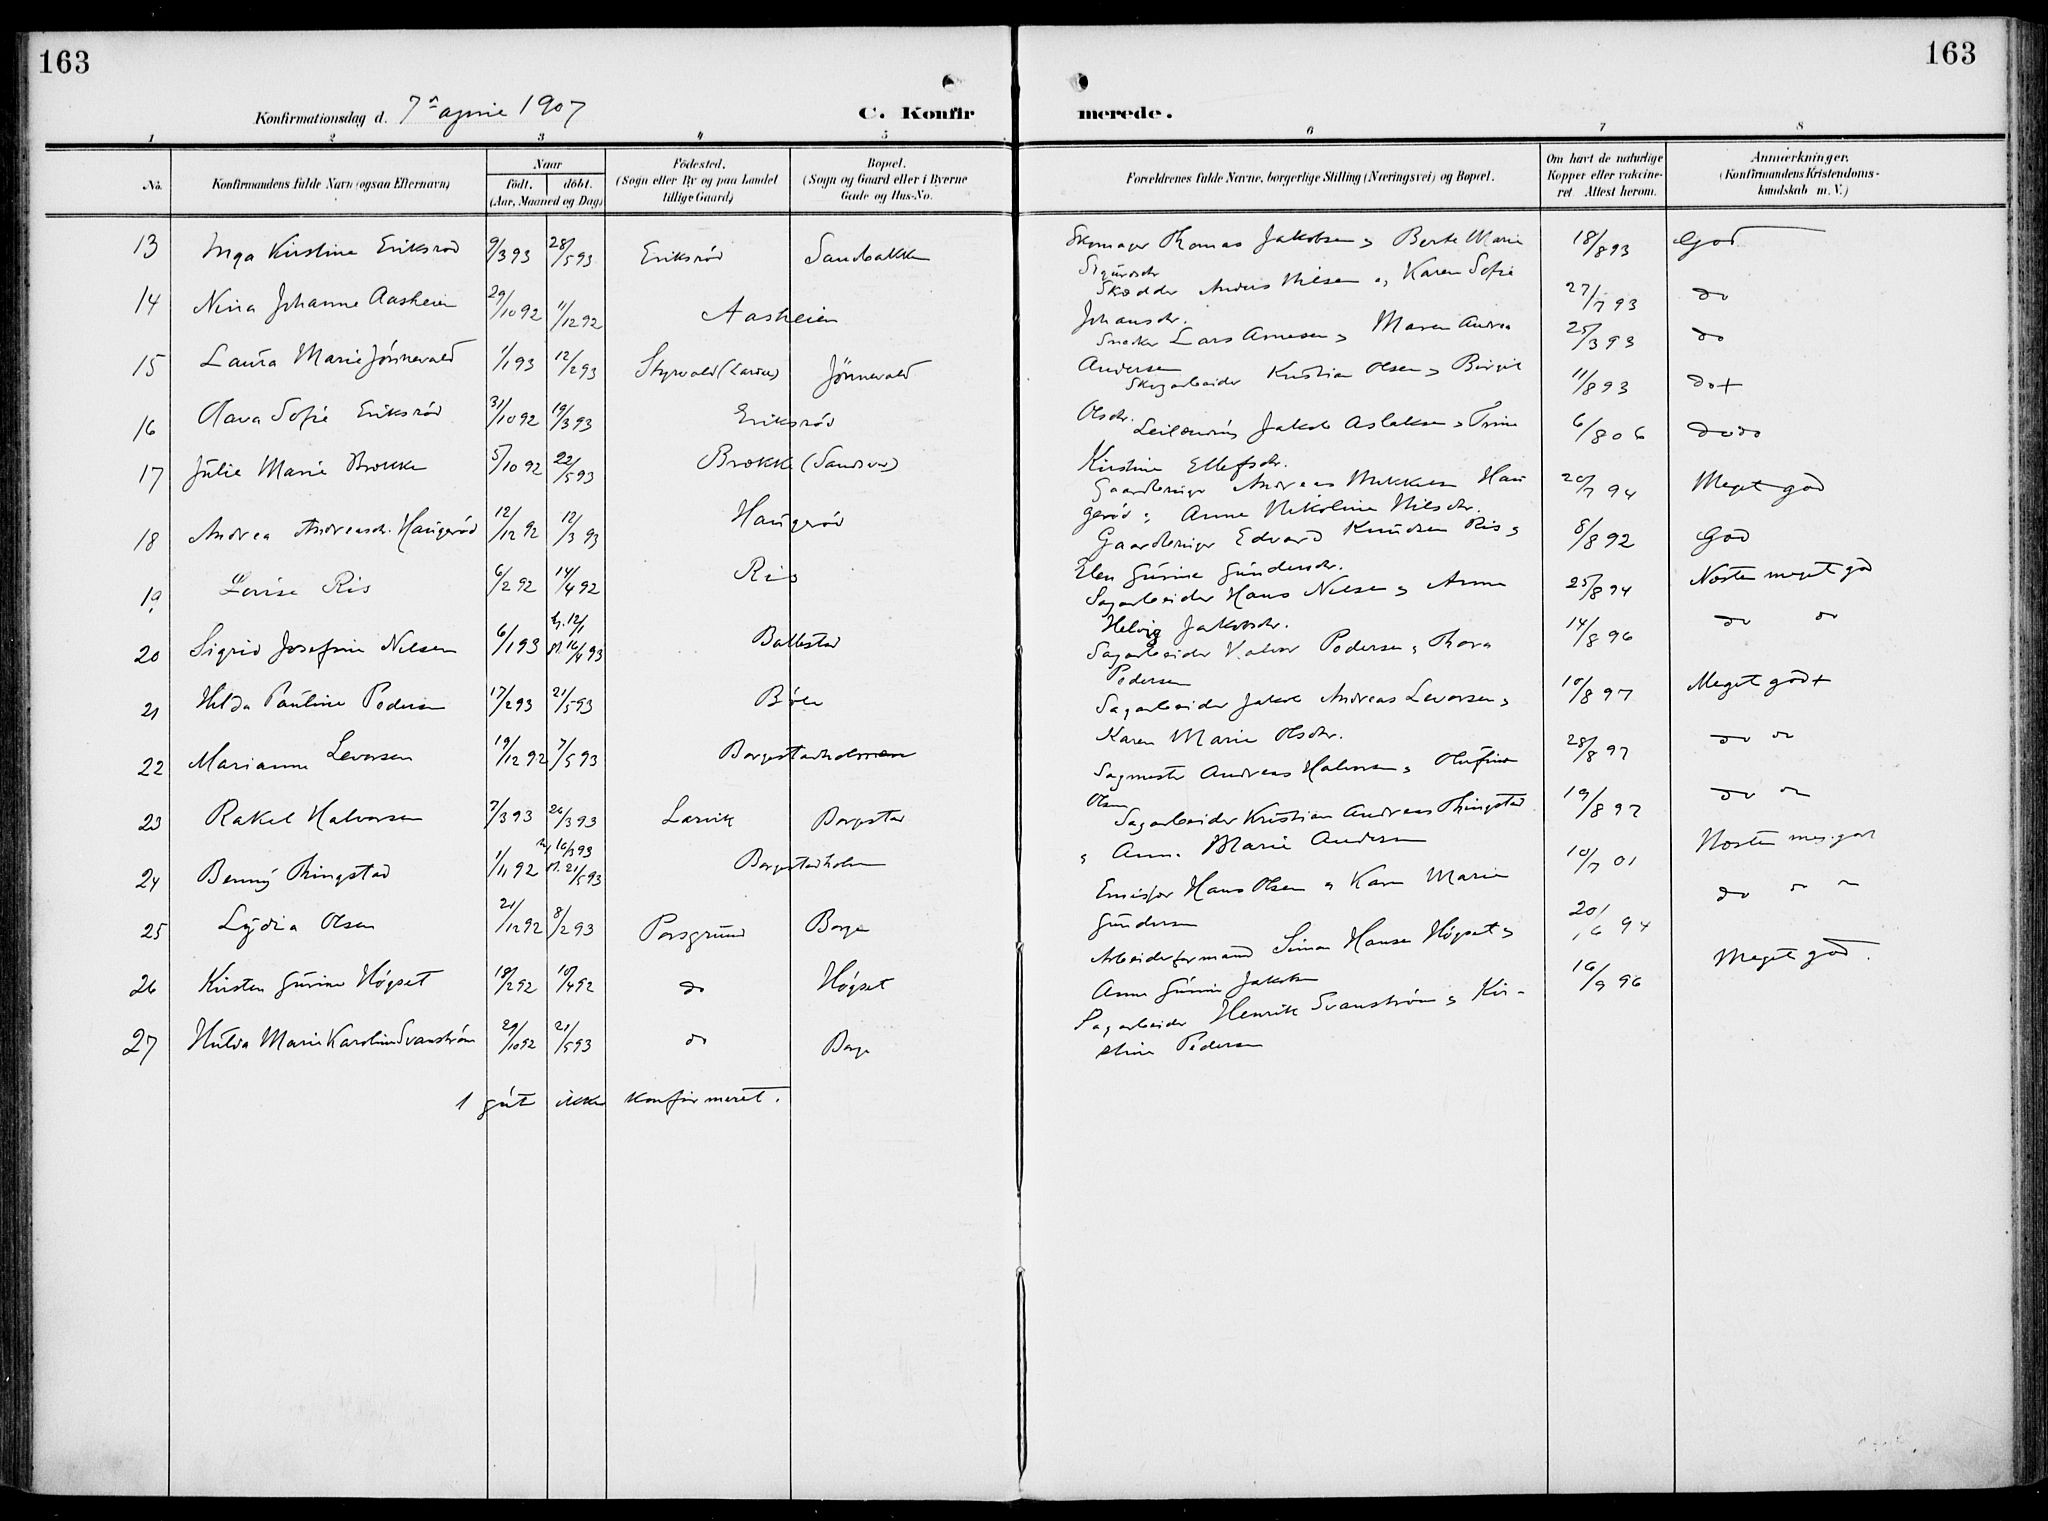 163
163
Konfirmationsdag d. 7de april 1907
C. Konfirmerede.
1 2 3 4 5 6 7 8
No. Konfirmandens fulde Navn (ogsaa Efternavn) Naar født. døbt. (Aar, Maaned og Dag) Fødested. (Sogn eller By og paa Landet tillige Gaard) Bopæl. (Sogn og Gaard eller i Byerne Gade og Hus-No. Forældrenes fulde Navne, borgerlige Stilling (Næringsvei) og Bopæl. Om havt de naturlige Kopper eller vaccineret Attest herom. Anmærkninger. (Konfirmandens Kristendomskundskab m. V.)
13 Inga Kirstine Eriksrød 9/3 93 28/5 93 Eriksrød Sandbakken Skomager Thomas Jakobsen og Berte Marie Sigurdsdr 18/8 93 God
14 Nina Johanne Aasheien 29/10 92 11/12 92 Aasheien Skrædder Anders Nilsen og Karen Sofie Johansdr. 27/7 93 do
15 Laura Marie Jønnevald 1/1 93 12/2 93 Styrvold (Lardal) Jønnevald Snekker Lars Arnesen og Maren Andrea Andersen 25/3 93 do
16 Olava Sofie Eriksrød 31/10 92 19/3 93 Eriksrød Skogarbeider Kristian Olsen og Birgit Olsdr. 11/8 93 do+
17 Julie Marie Brække 5/10 92 22/5 93 Brække (Sandsver) Leilænding Jakob Aslaksen og Trine Kirstine Ellefsdr. 6/8 06 dodo
18 Andrea Andreasdr. Haugerød 12/12 92 12/3 93 Haugerød Gaardbruger Andreas Mikkelsen Haugerød og Anne Nikoline Nilsdr. 20/7 94 Meget god
19 Lovise Ris 6/2 92 14/4 92 Ris Gaardbruger Edvard Knudsen Ris og Elen Gurine Gundersdr. 8/8 92 God
20 Sigrid Josefine Nilsen 6/1 93 hj. 12/1 st. 16/4 93 Ballestad Sagarbeider Hans Nilsen og Anne Helvig Jakobsdr. 25/8 94 Næsten meget god
21 Hilda Pauline Pedersen 17/2 93 21/5 93 Bøle Sagarbeider Halvor Pedersen og Thora Pedersen 14/8 96 do do
22 Marianne Levorsen 19/12 92 7/5 93 Borgestadholmen Sagarbeider Jakob Andreas Levorsen og Karen Marie Olsdr. 10/8 97 Meget god+
23 Rakel Halvorsen 7/3 93 26/3 93 Larvik Borgestad Sagmester Andreas Halvorsen og Olufine Olsen 28/8 97 do do
24 Benny Thingstad 1/11 92 hj. 16/3 93 st. 21/5 93 Borgestadholm Sagarbeider Kristian Andreas Thingstad og Anne Marie Andersen 19/8 97 do do
25 Lydia Olsen 21/12 92 8/2 93 Porsgrund Borge Emissær Hans Olsen og Karen Marie Gundersen 10/7 01 Næsten meg. god
26 Kirsten Gurine Høgset 18/2 92 10/4 92 do Høgset Arbeiderformand Simon Hansen Høgset og Anne Gurine Jakobsen 20/6 94 do do do
27 Hulda Marie Karoline Svanstrøm 29/10 92 21/5 93 do Borge Sagarbeider Henrik Svanstrøm og Kirstine Pedersen 16/9 96 Meget god.
1 gut ikke konfirmeret.